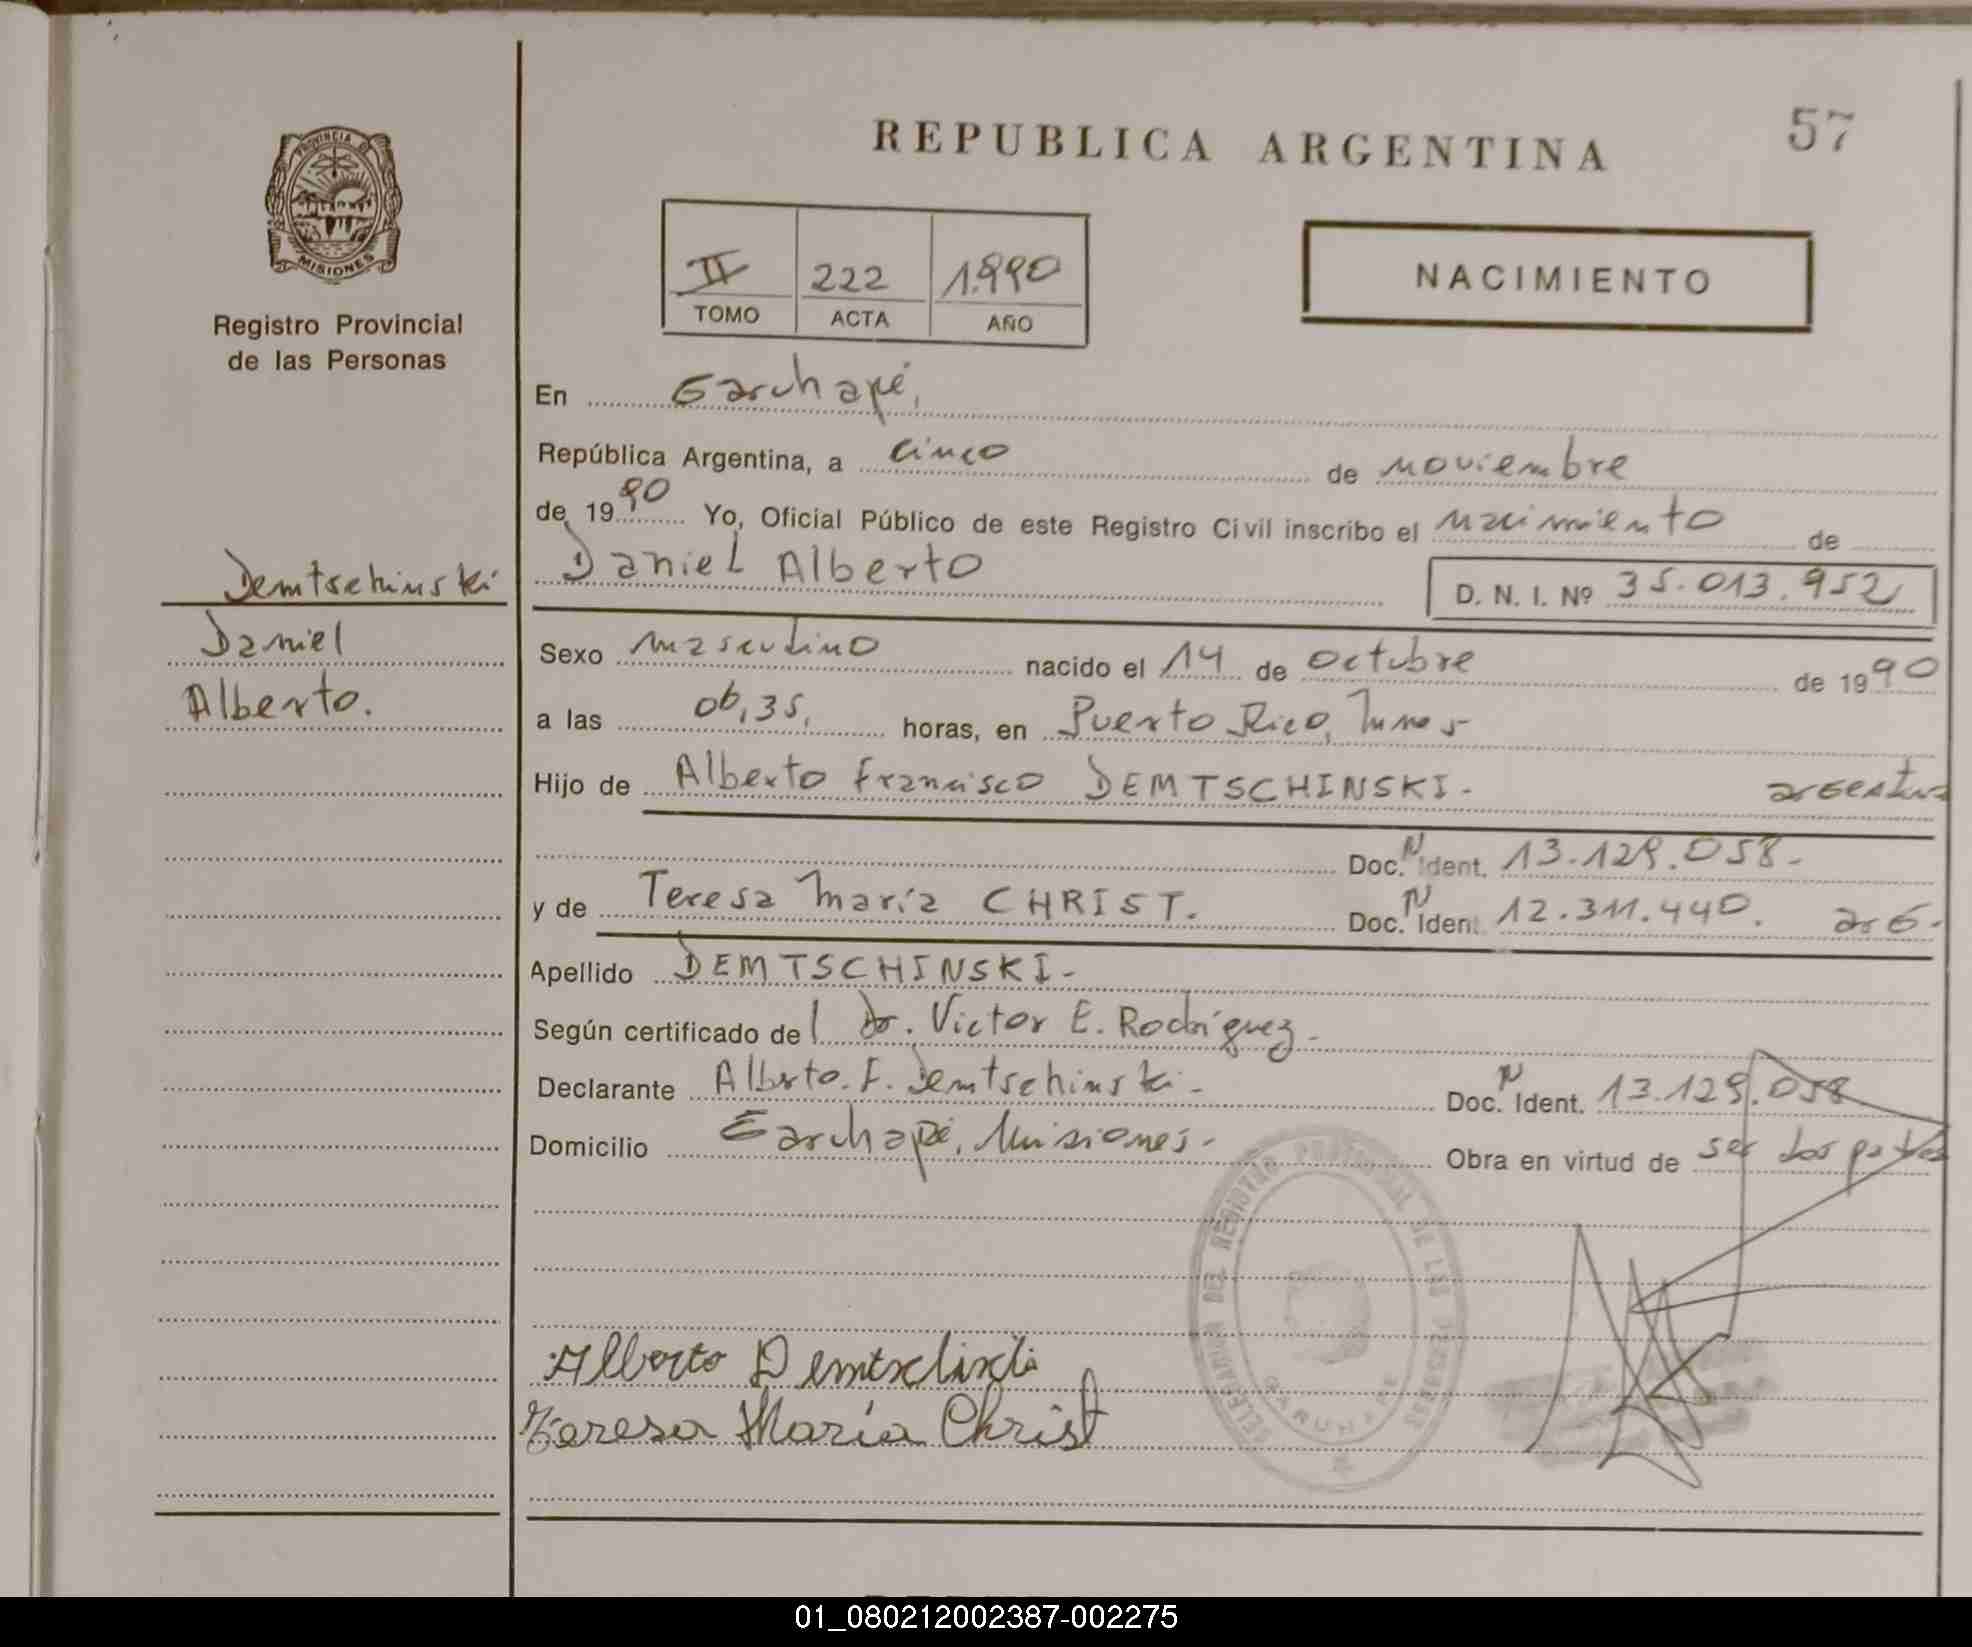 REPUBLICA ARGENTINA
57
PROVINCIA DE
MISIONES
Registro Provincial
de las Personas
II 222 1.990
TOMO ACTA AÑO
NACIMIENTO
En Garuhapé,
República Argentina, a cinco de noviembre
de 1990 Yo, Oficial Público de este Registro Civil inscribo el nacimiento de
Daniel Alberto D. N. I. Nº 35.013.952
Demtschinski
Daniel
Alberto.
Sexo masculino nacido el 14 de octubre de 1990
a las 06,35, horas, en Puerto Rico,
Hijo de Alberto Francisco DEMTSCHINSKI. argentino
Doc. N Ident. 13.129.058.-
y de Teresa María CHRIST. Doc. N Ident. 12.311.440. arg.
Apellido DEMTSCHINSKI-
Según certificado del Dr. Victor E. Rodríguez-
Declarante Alberto. F. Demtschinski- Doc. N Ident. 13.129.058
Domicilio Garuhapé, Misiones- Obra en virtud de ser los padres
DEL REGISTRO PROVINCIAL DE LAS PERSONAS
GARUHAPE
Alberto
Teresa María Christ
01_080212002387-002275